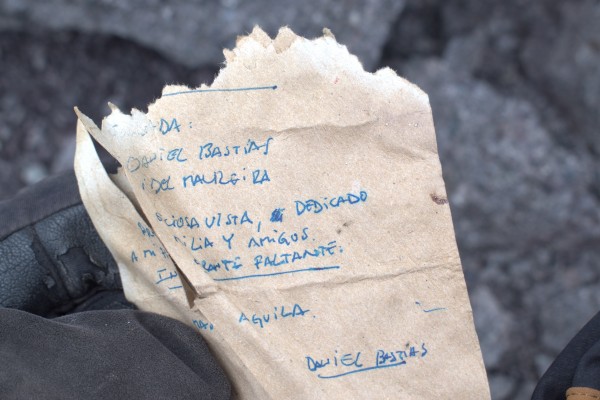 DA:
DANIEL BASTIAS
DEL MAUREIRA
CIOSA VISTA, DEDICADO
A MI ILIA Y AMIGOS.
IN RANTE FALTANTE:
AGUILA.
DANIEL BASTIAS